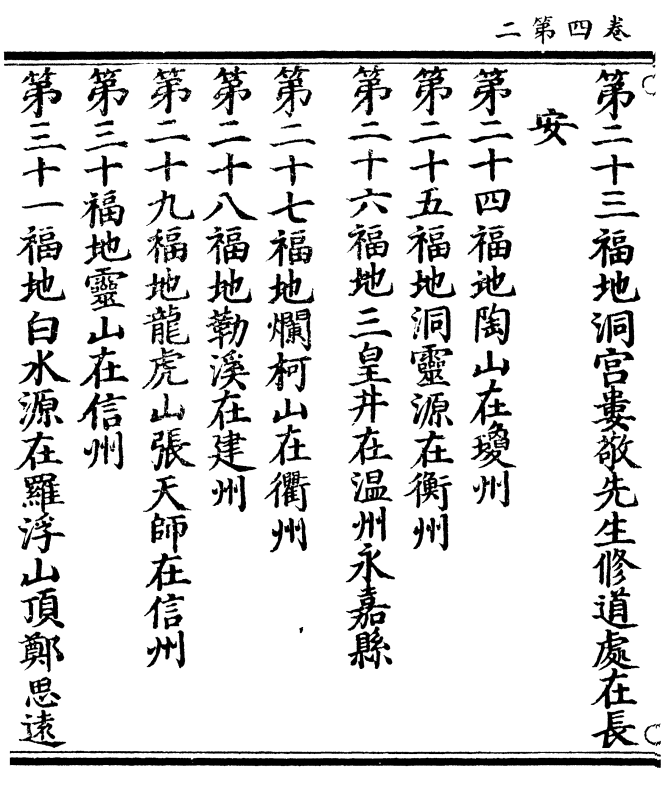 卷四第二
第二十三福地洞宫婁敬先生修道處在長
安
第二十四福地陶山在瓊州
第二十五福地洞靈源在衡州
第二十六福地三皇井在温州永嘉縣
第二十七福地爛柯山在衢州
第二十八福地勒溪在建州
第二十九福地龍虎山張天師在信州
第三十福地靈山在信州
第三十一福地白水源在羅浮山頂鄭思遠